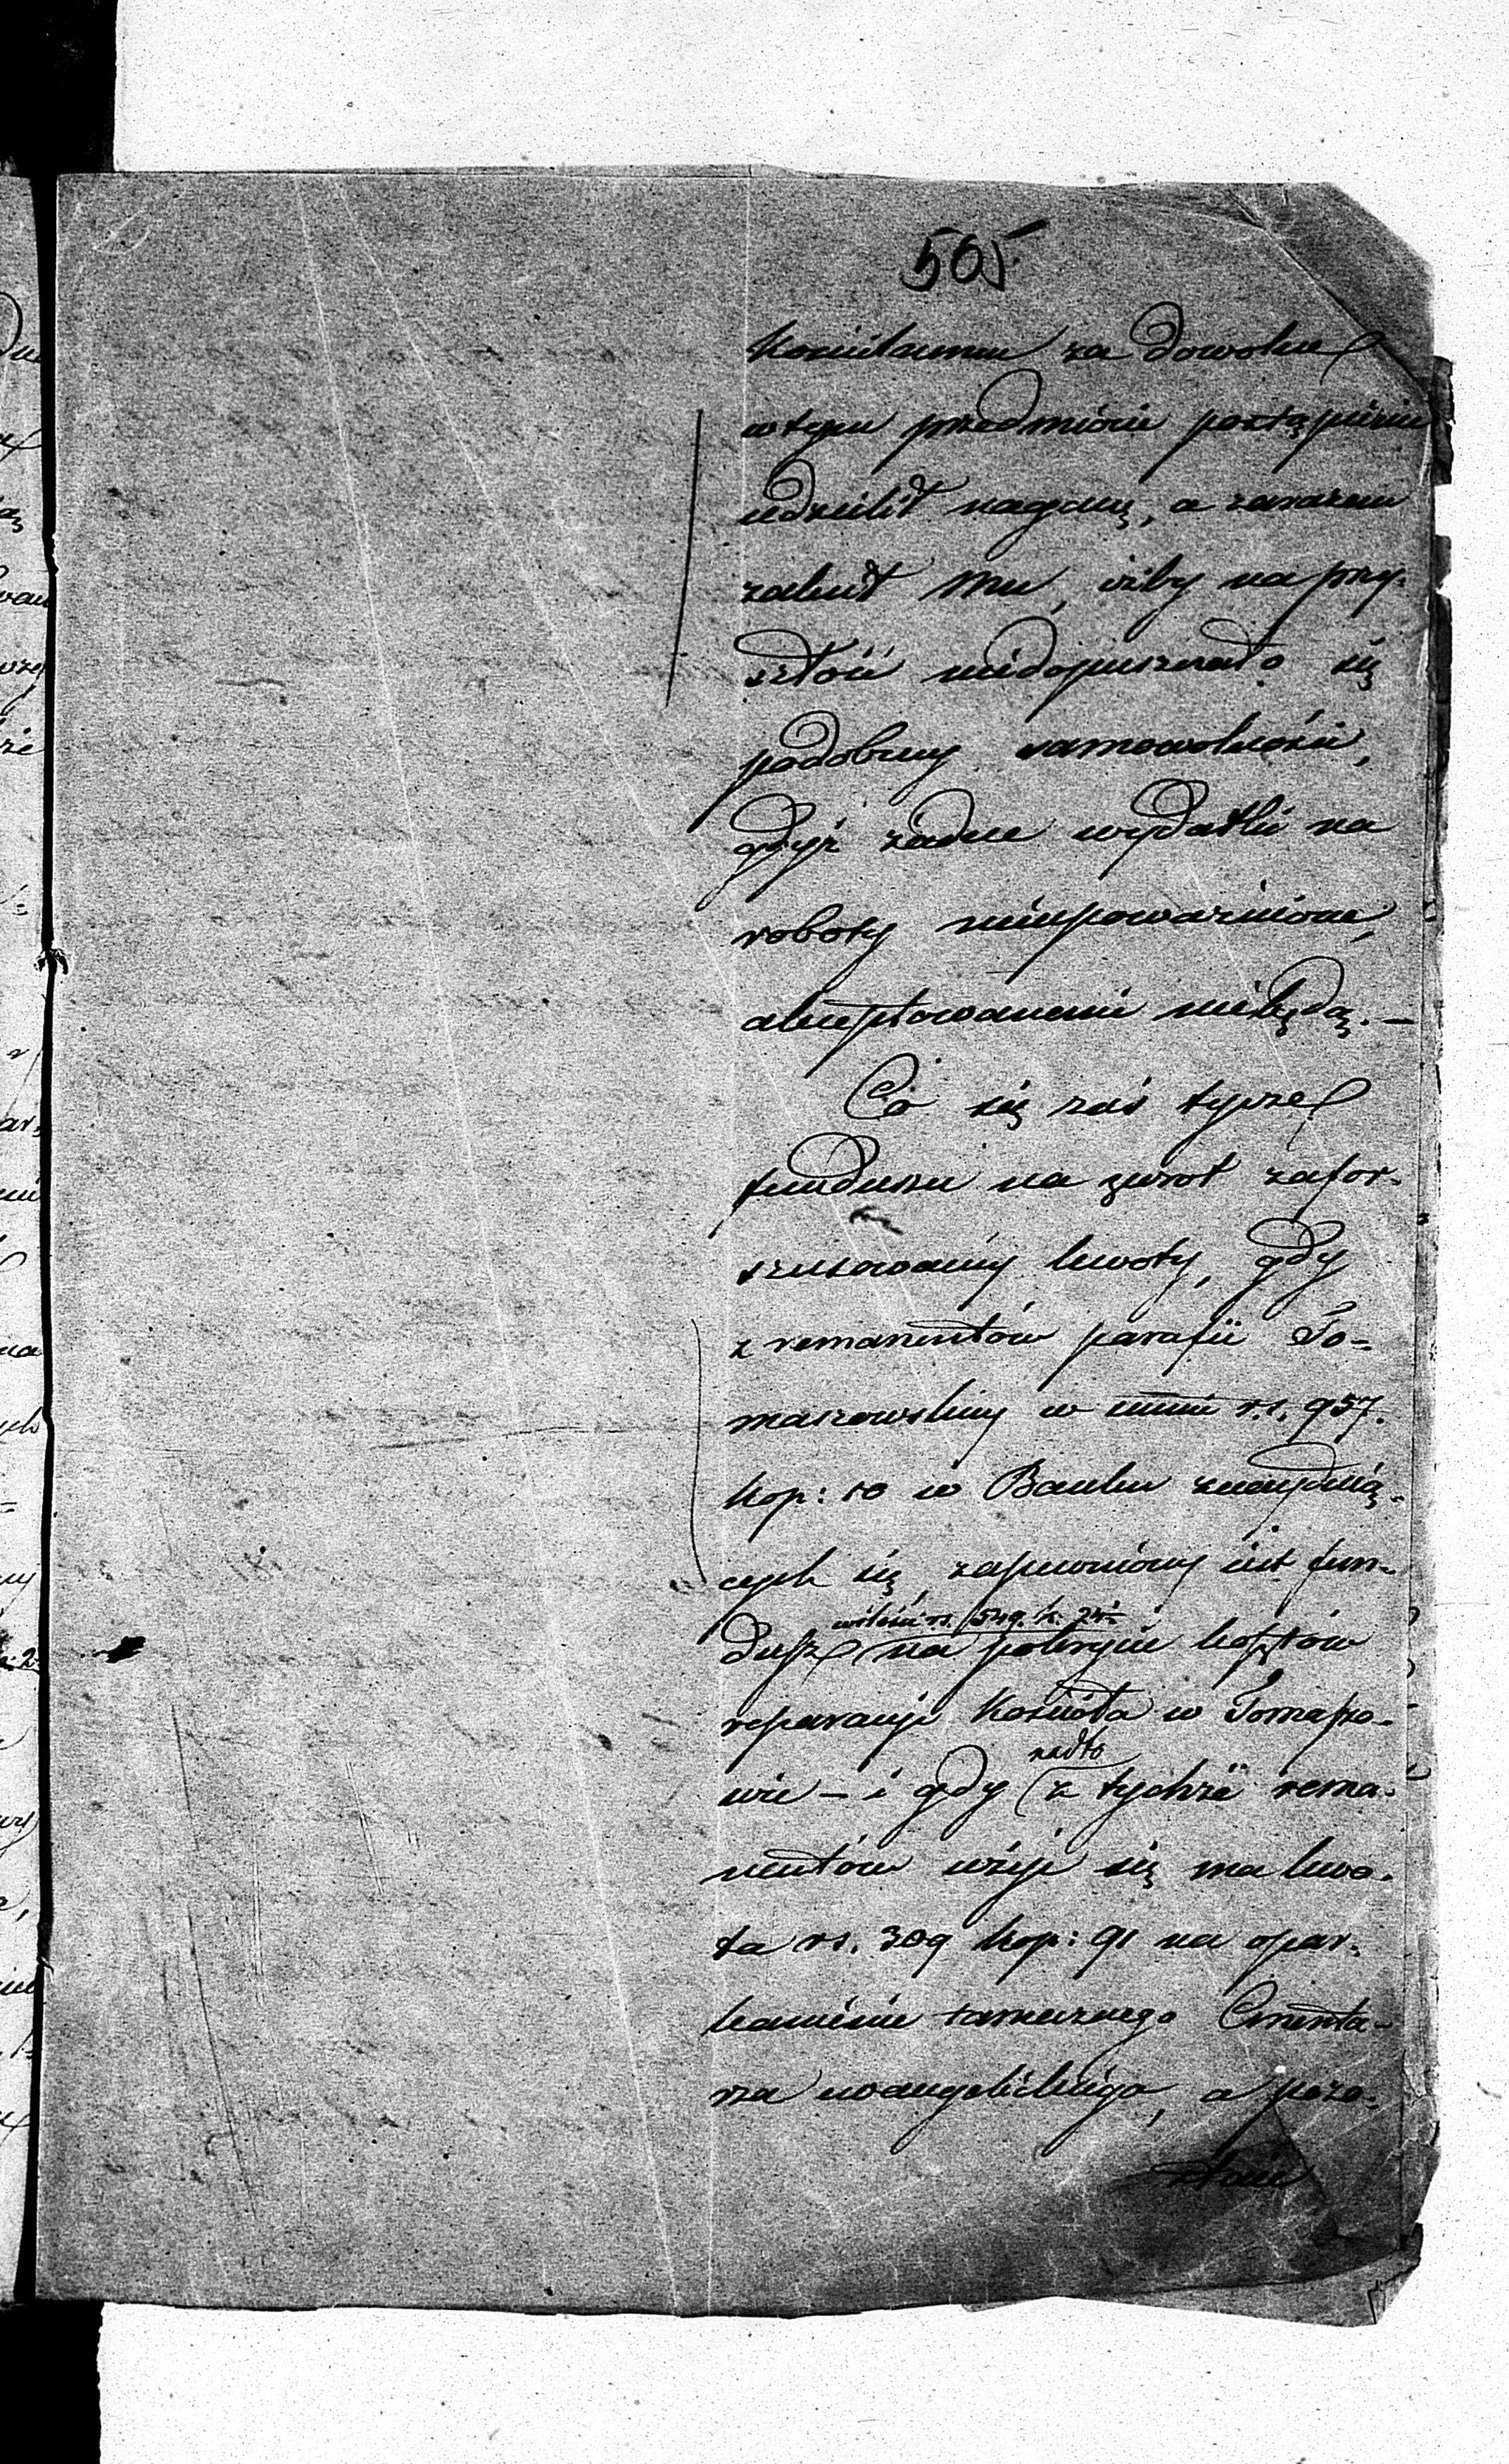 505
Kościelnemu za dowolne
w tym przedmiocie postąpienie
udzielił naganę, a zarazem
zalecił mu, iżby na przy-
szłość niedopuszczało się
podobnej samowolności,
gdyż żadne wydatki na
roboty nieupoważnione,
akceptowanemi niebędą. —
Co się zaś tycze
funduszu na zwrot zafor-
szusowanej kwoty, gdy
z remanentów parafii To-
maszowskiej w summie rs. 957.
kop: 10 w Banku znajdują-
cych się, zapewniony jest fun-
w ilości rs. 549. k. 24½
dusz na pokrycie kosztów
reparacji Kościoła w Tomaszo-
nadto
wie – i gdy z tychże rema-
nentów użyć się ma kwo-
ta rs. 309 kop: 91 na opar-
kanienie tamecznego Cmenta-
rza ewangelickiego, a pozo-